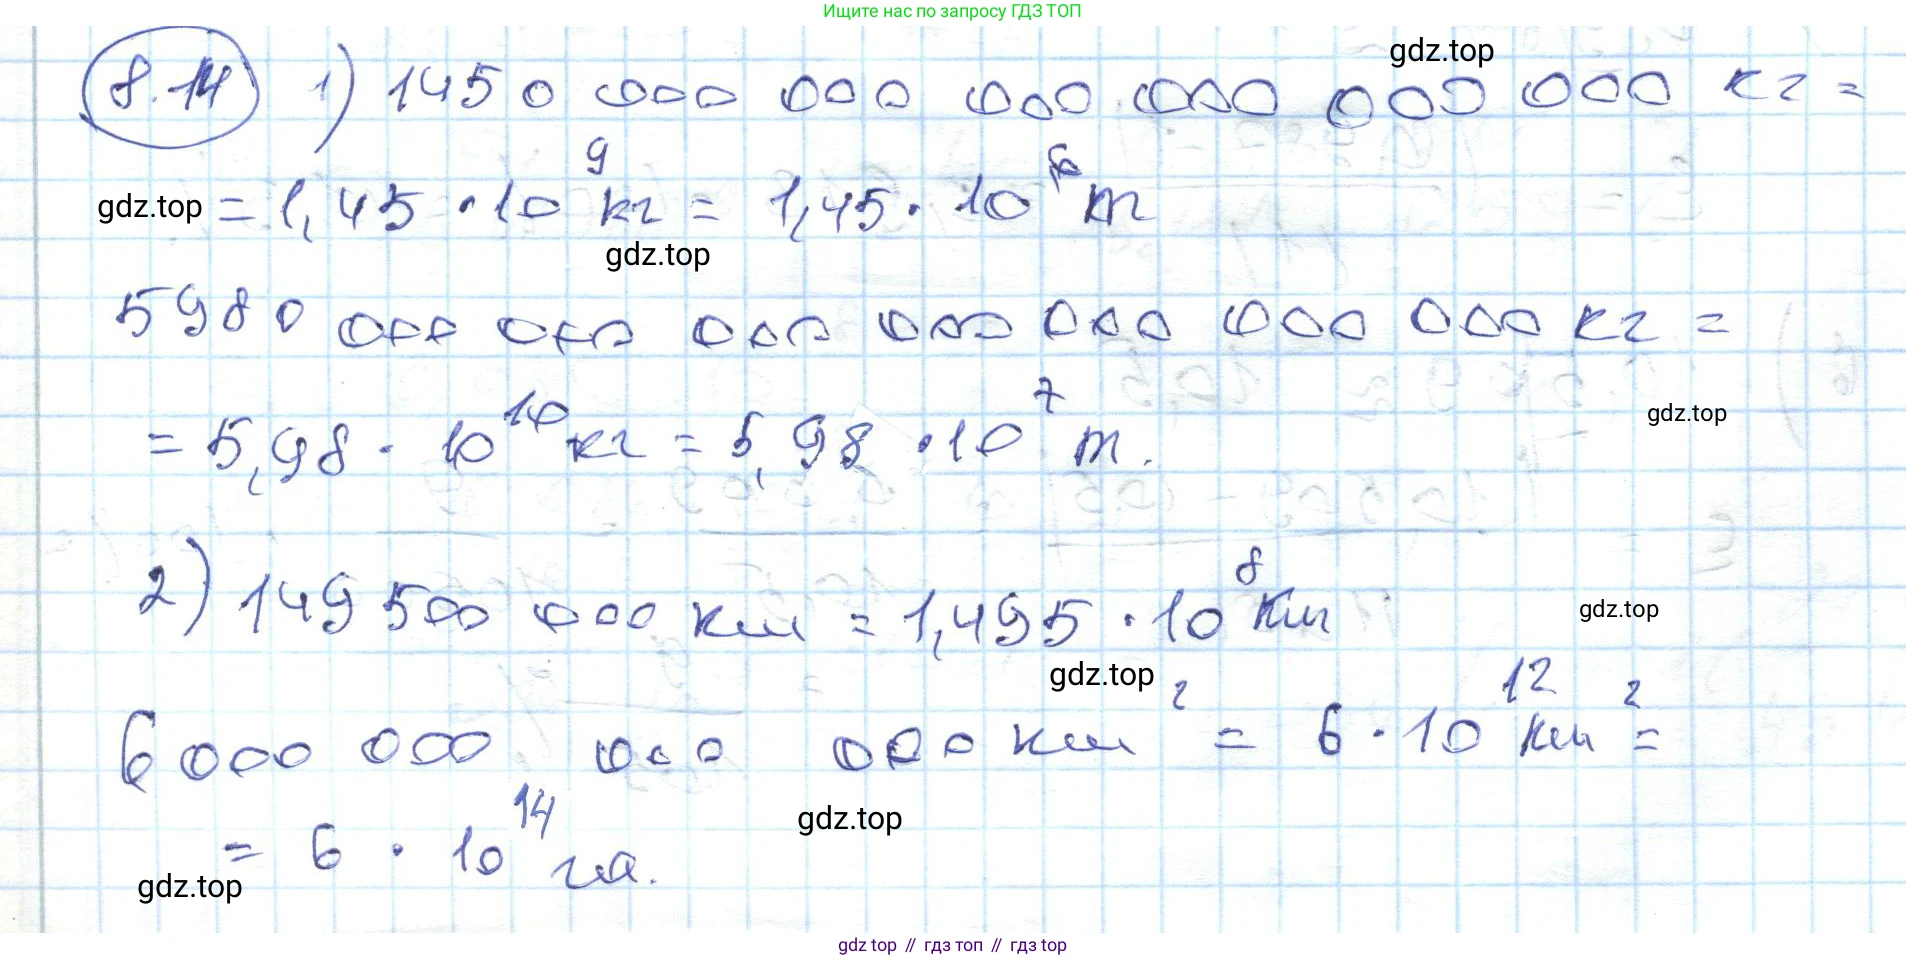 Ищите нас по запросу ГДЗ ТОП
gdz.top
8.14 1) 1450 000 000 000 000 000 000 кг =
gdz.top = 1,45 · 10⁹ кг = 1,45 · 10⁶ т
gdz.top
5980 000 000 000 000 000 000 000 кг =
gdz.top
= 5,98 · 10¹⁰ кг = 5,98 · 10⁷ т.
2) 149 500 000 км = 1,495 · 10⁸ км
gdz.top
gdz.top
6 000 000 000 000 км² = 6 · 10¹² км² =
gdz.top
= 6 · 10¹⁴ га.
gdz.top
gdz top // гдз топ // гдз top